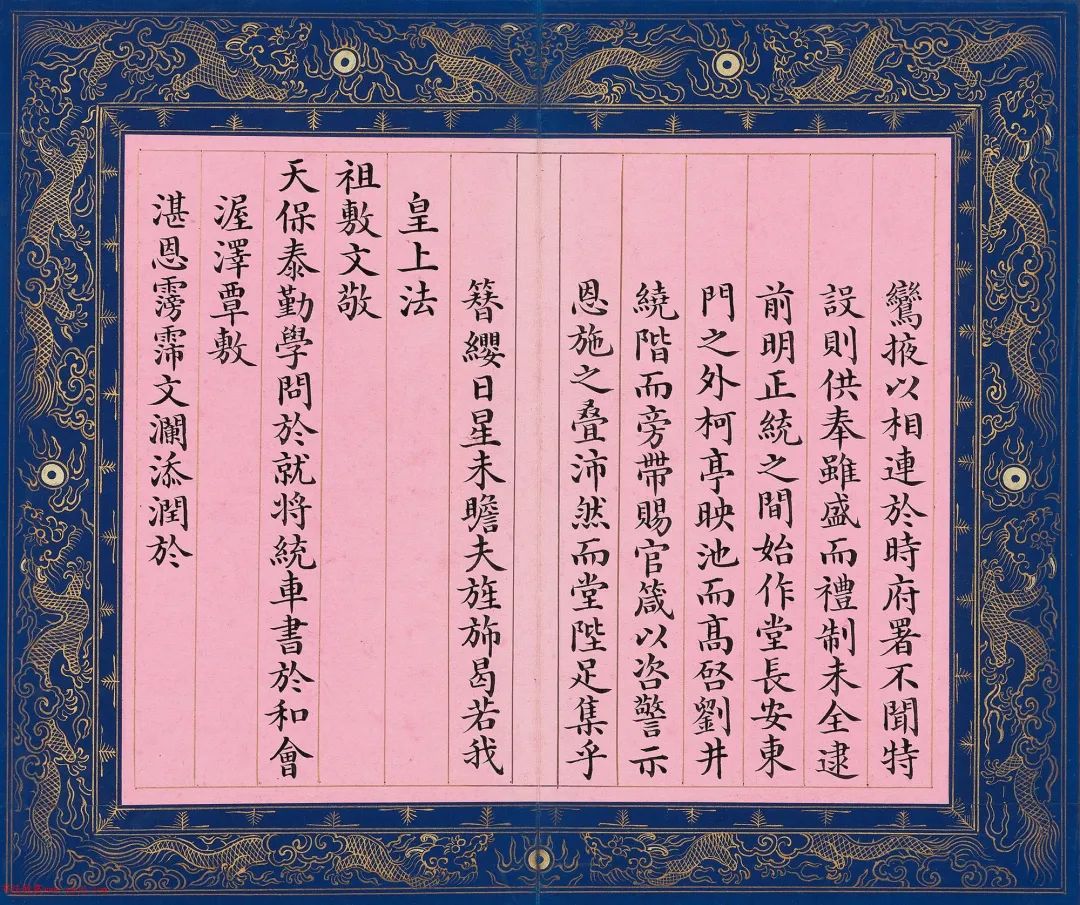 鸞掖以相連於時府署不聞特
設則供奉雖盛而禮制未全逮
前明正統之間始作堂長安東
門之外柯亭映池而高啓劉井
繞階而旁帶賜官箴以咨警示
恩施之叠沛然而堂陛足集乎
簪纓日星未瞻夫旌斾曷若我
皇上法
祖敷文敬
天保泰勤學問於就將統車書於和會
渥澤覃敷
湛恩霶霈文瀾添潤於